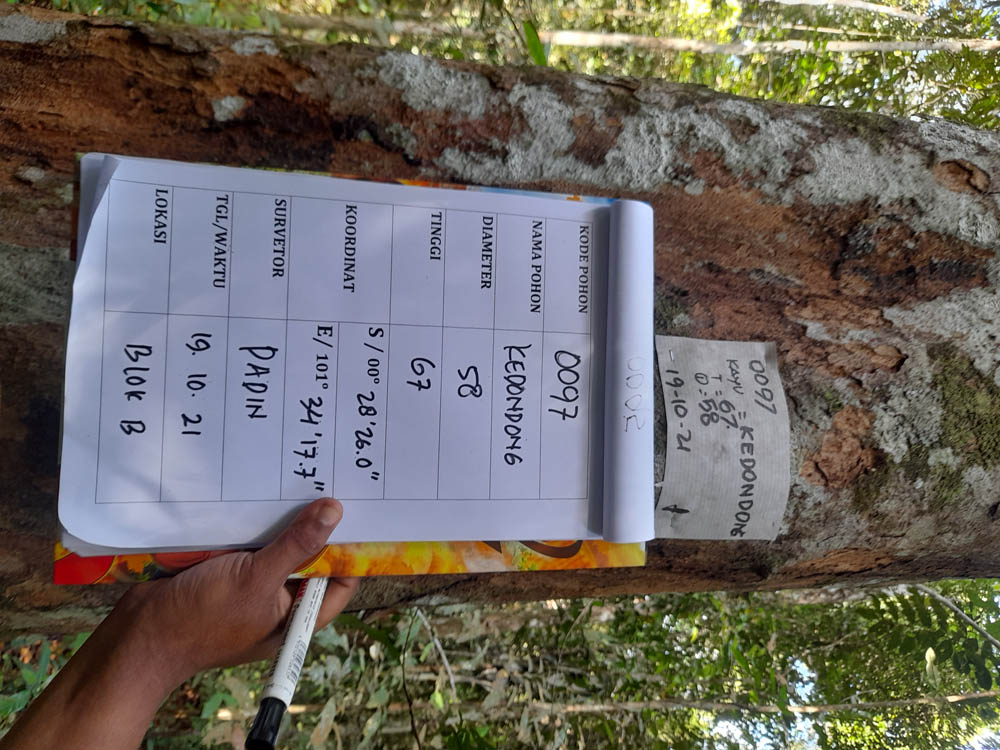 0097
KAYU = KEDONDONG
T = 67.
Ⓓ = 58
19-10-21
0002
KODE POHON 0097
NAMA POHON KEDONDONG
DIAMETER 58
TINGGI 67
KOORDINAT S / 00° 28'26.0"
E/ 101° 34'17.7"
SURVETOR PADIN
TGL/WAKTU 19. 10. 21
LOKASI BLOK B